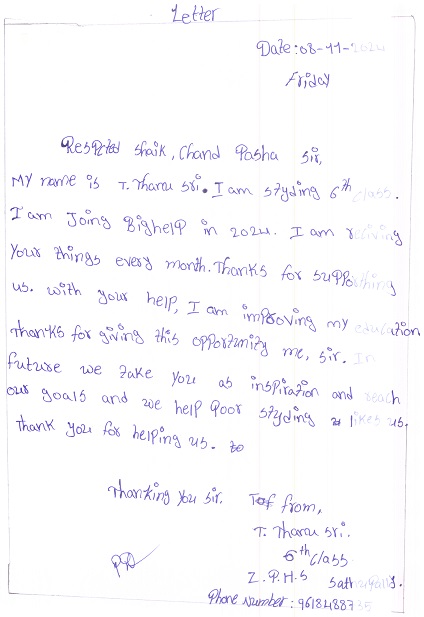 Letter
Date : 08-11-2024
Friday
Respcted Shaik, Chand Pasha Sir,
My name is T. Tharu Sri. I am styding 6th class.
I am Joing Bighelp in 2024. I am reciving
Your things every month. Thanks for supporthing
us. with your help, I am improving my education
Thanks for giving this opportunity me, sir. In
future we take you as inspiration and reach
our goals and we help poor styding likes us.
Thank you for helping us.
Thanking you sir. from,
T. Tharu Sri.
6th class
Z. P. H. S
Phone Number : 9618488735